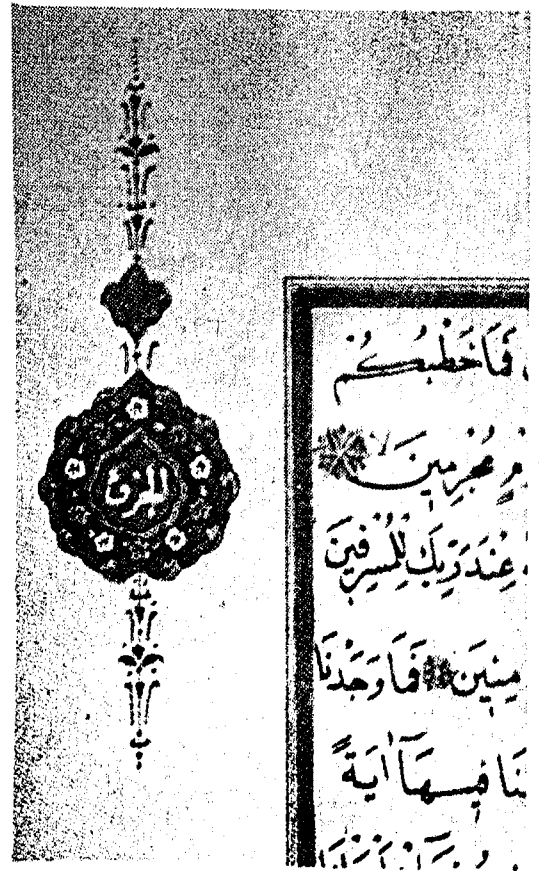 الجزء
فَمَا خَطْبُكُمْ
مٍ مُجْرِمِينَ
عِنْدَ رَبِّكَ لِلْمُسْرِفِينَ
مِنِينَ فَمَا وَجَدْنَا
نَا فِيهَآ اٰيَةً